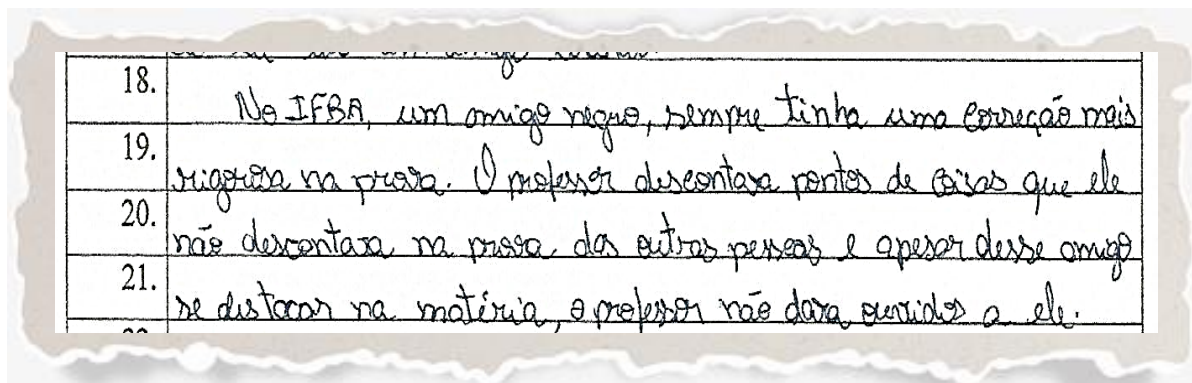 18. No IFBA, um amigo negro, sempre tinha uma correção mais
19. rigorosa na prova. O professor descontava pontos de coisas que ele
20. não descontava na prova das outras pessoas e apesar desse amigo
21. se distacar na matéria, o professor não dava ouvidos a ele.